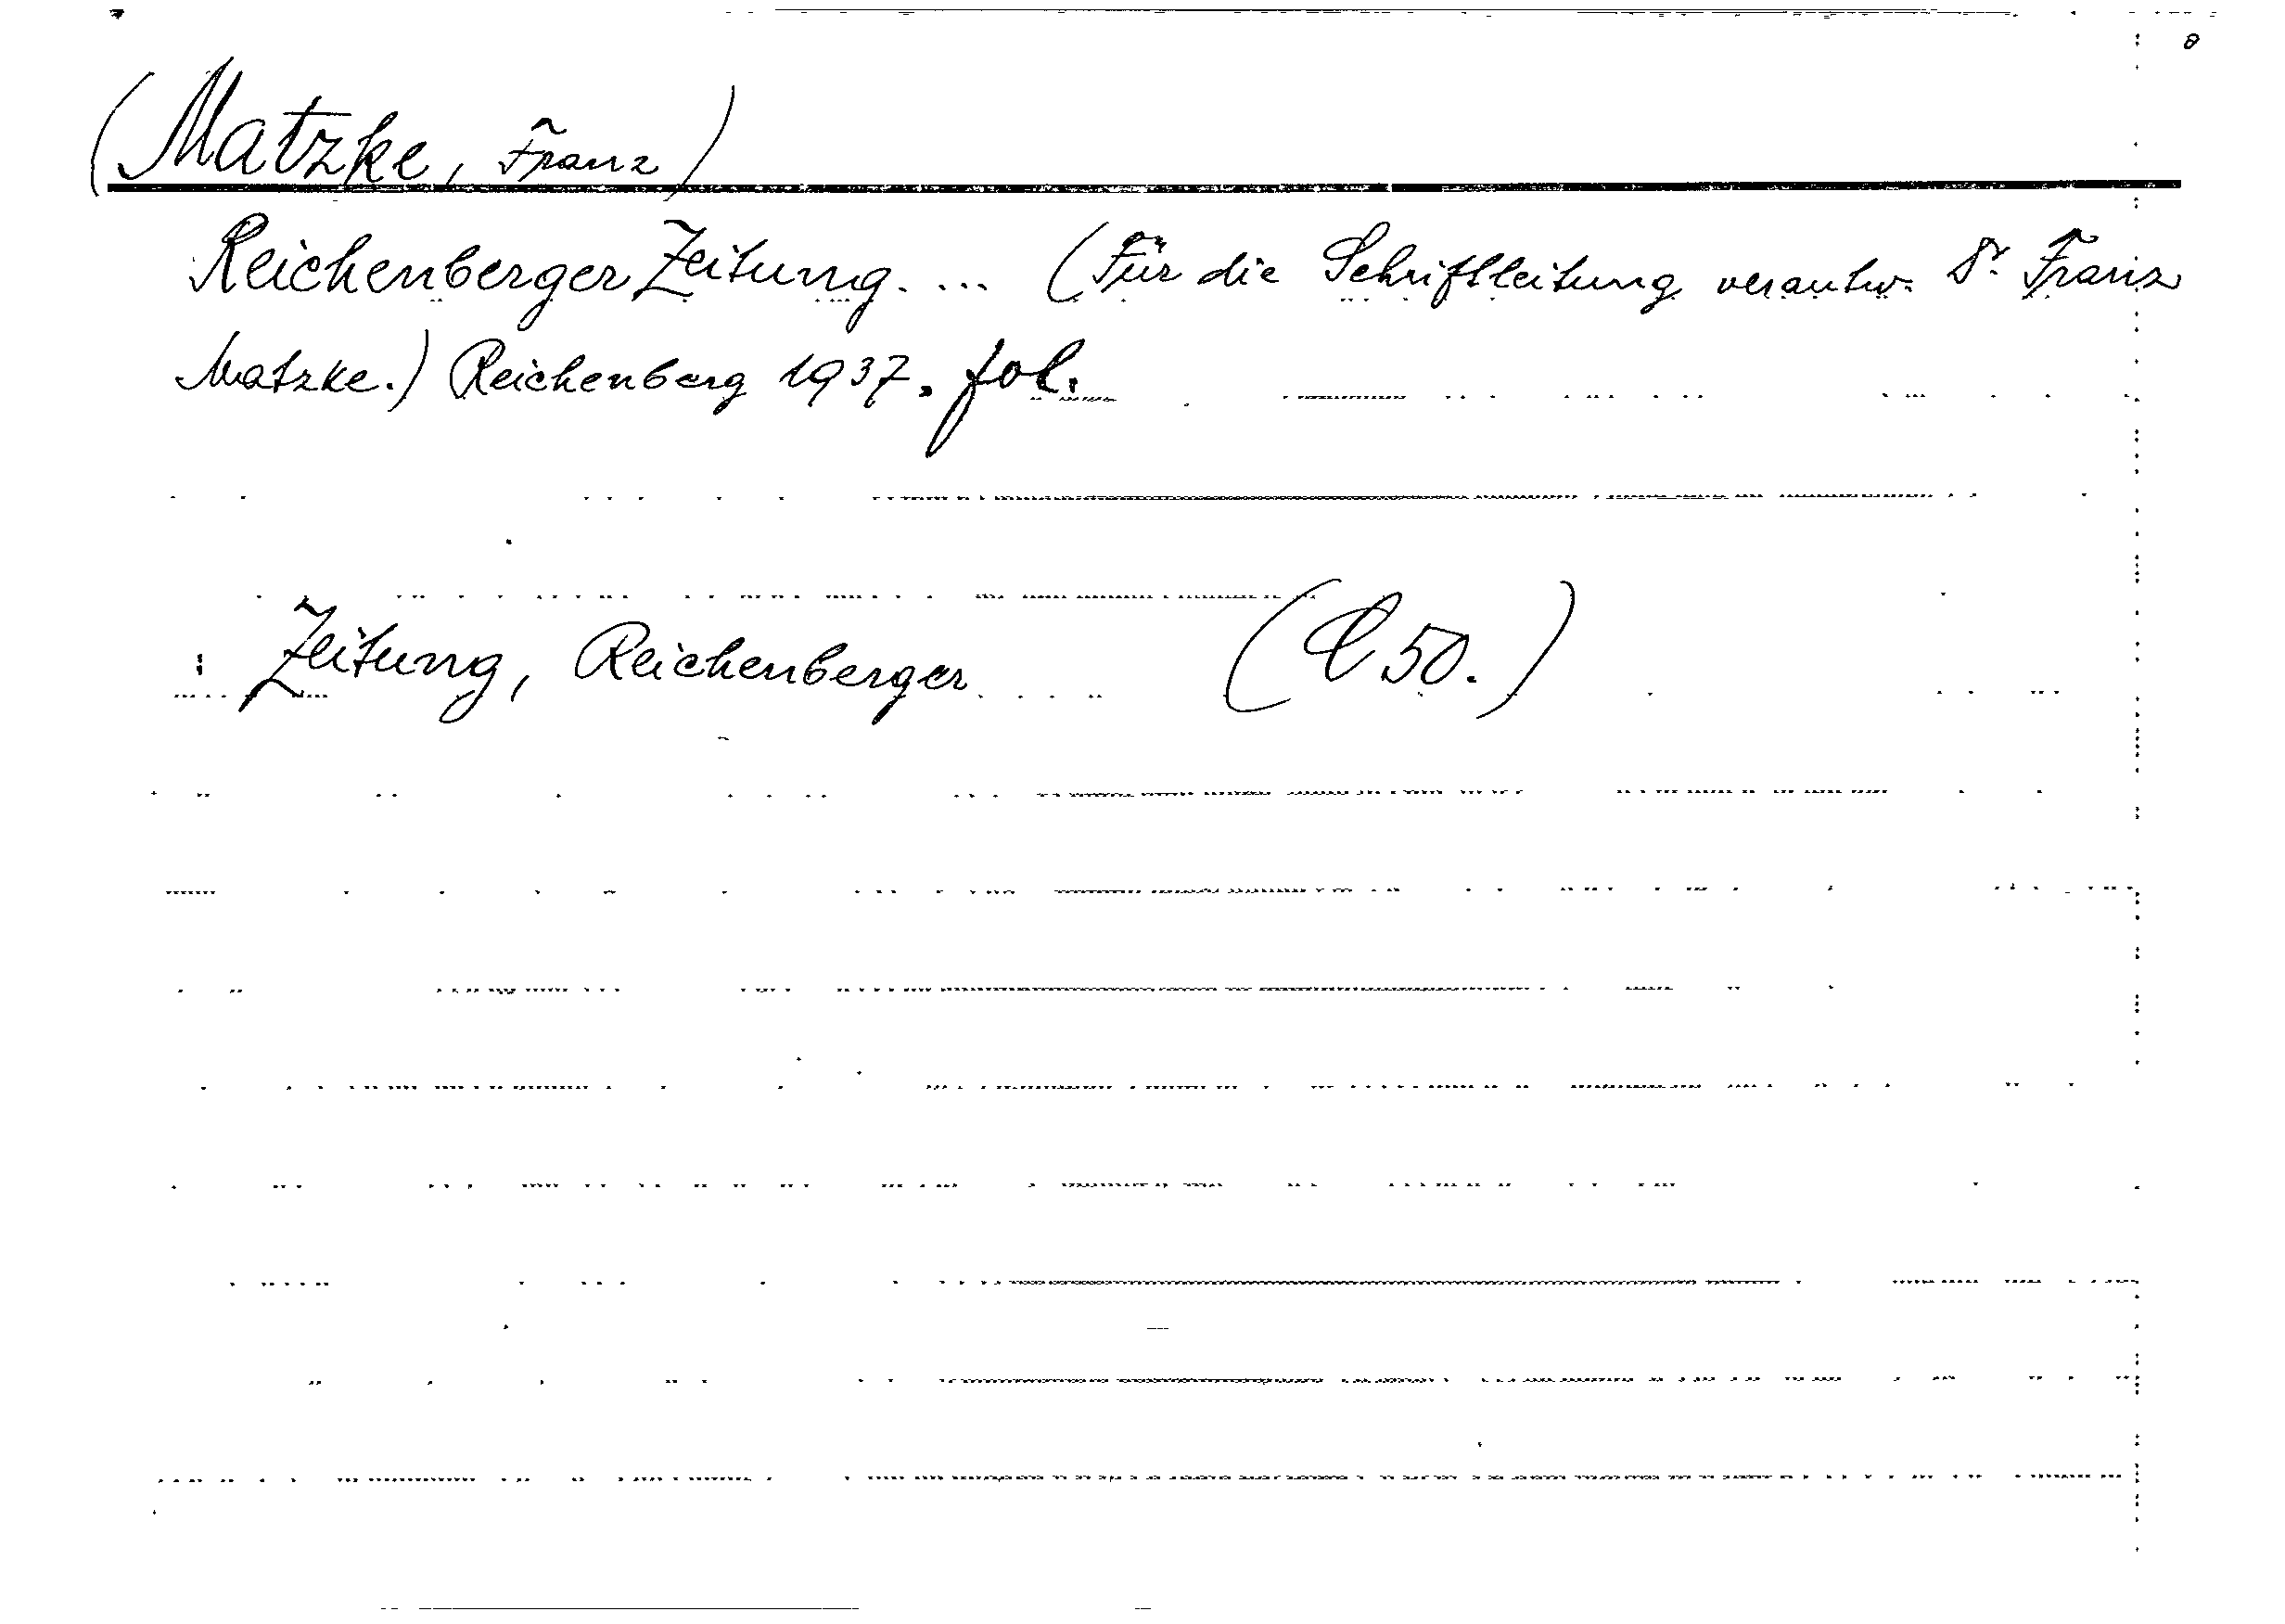 (Matzke, Franz)
Reichenberger Zeitung. ... (Für die Schriftleitung verantw. Dr. Franz
Matzke.) Reichenberg 1937. fol.
: Zeitung, Reichenberger (C 50.)